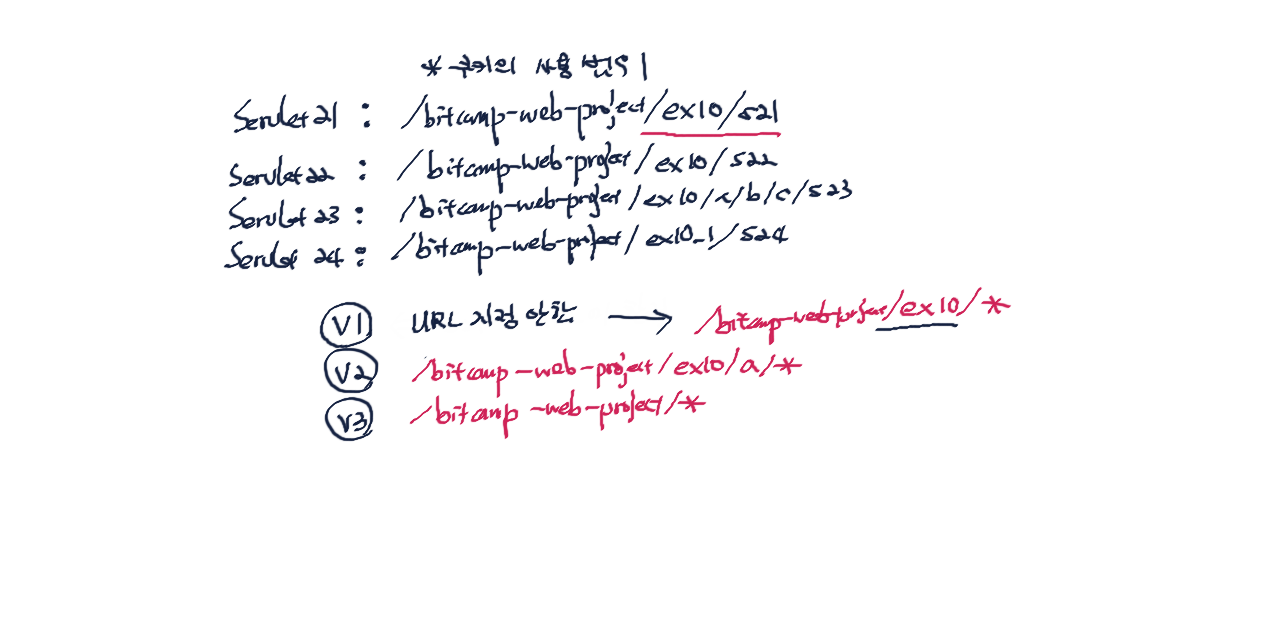 * 쿠키의 사용 범위
Servlet21 : /bitcamp-web-project/ex10/s21
Servlet22 : /bitcamp-web-project/ex10/s22
Servlet23 : /bitcamp-web-project/ex10/a/b/c/s23
Servlet 24 : /bitcamp-web-project/ex10_1/s24
V1 URL 지정 안함 → /bitcamp-web-project/ex10/*
V2 /bitcamp-web-project/ex10/a/*
V3 /bitcamp-web-project/*